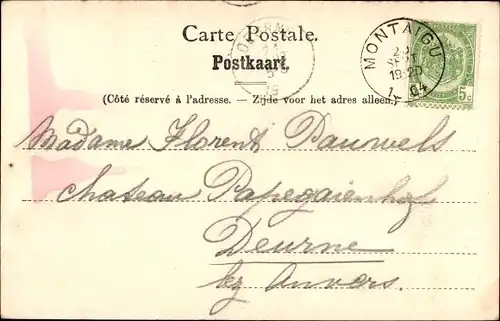 Carte Postale.
Postkaart.
(Côté réservé à l'adresse. — Zijde voor het adres alleen.)
MONTAIGU
SEPT
19-20
04
5c
Madame Florent Pauwels
Chateau Papegaienhof
Deurne
bij Anvers.